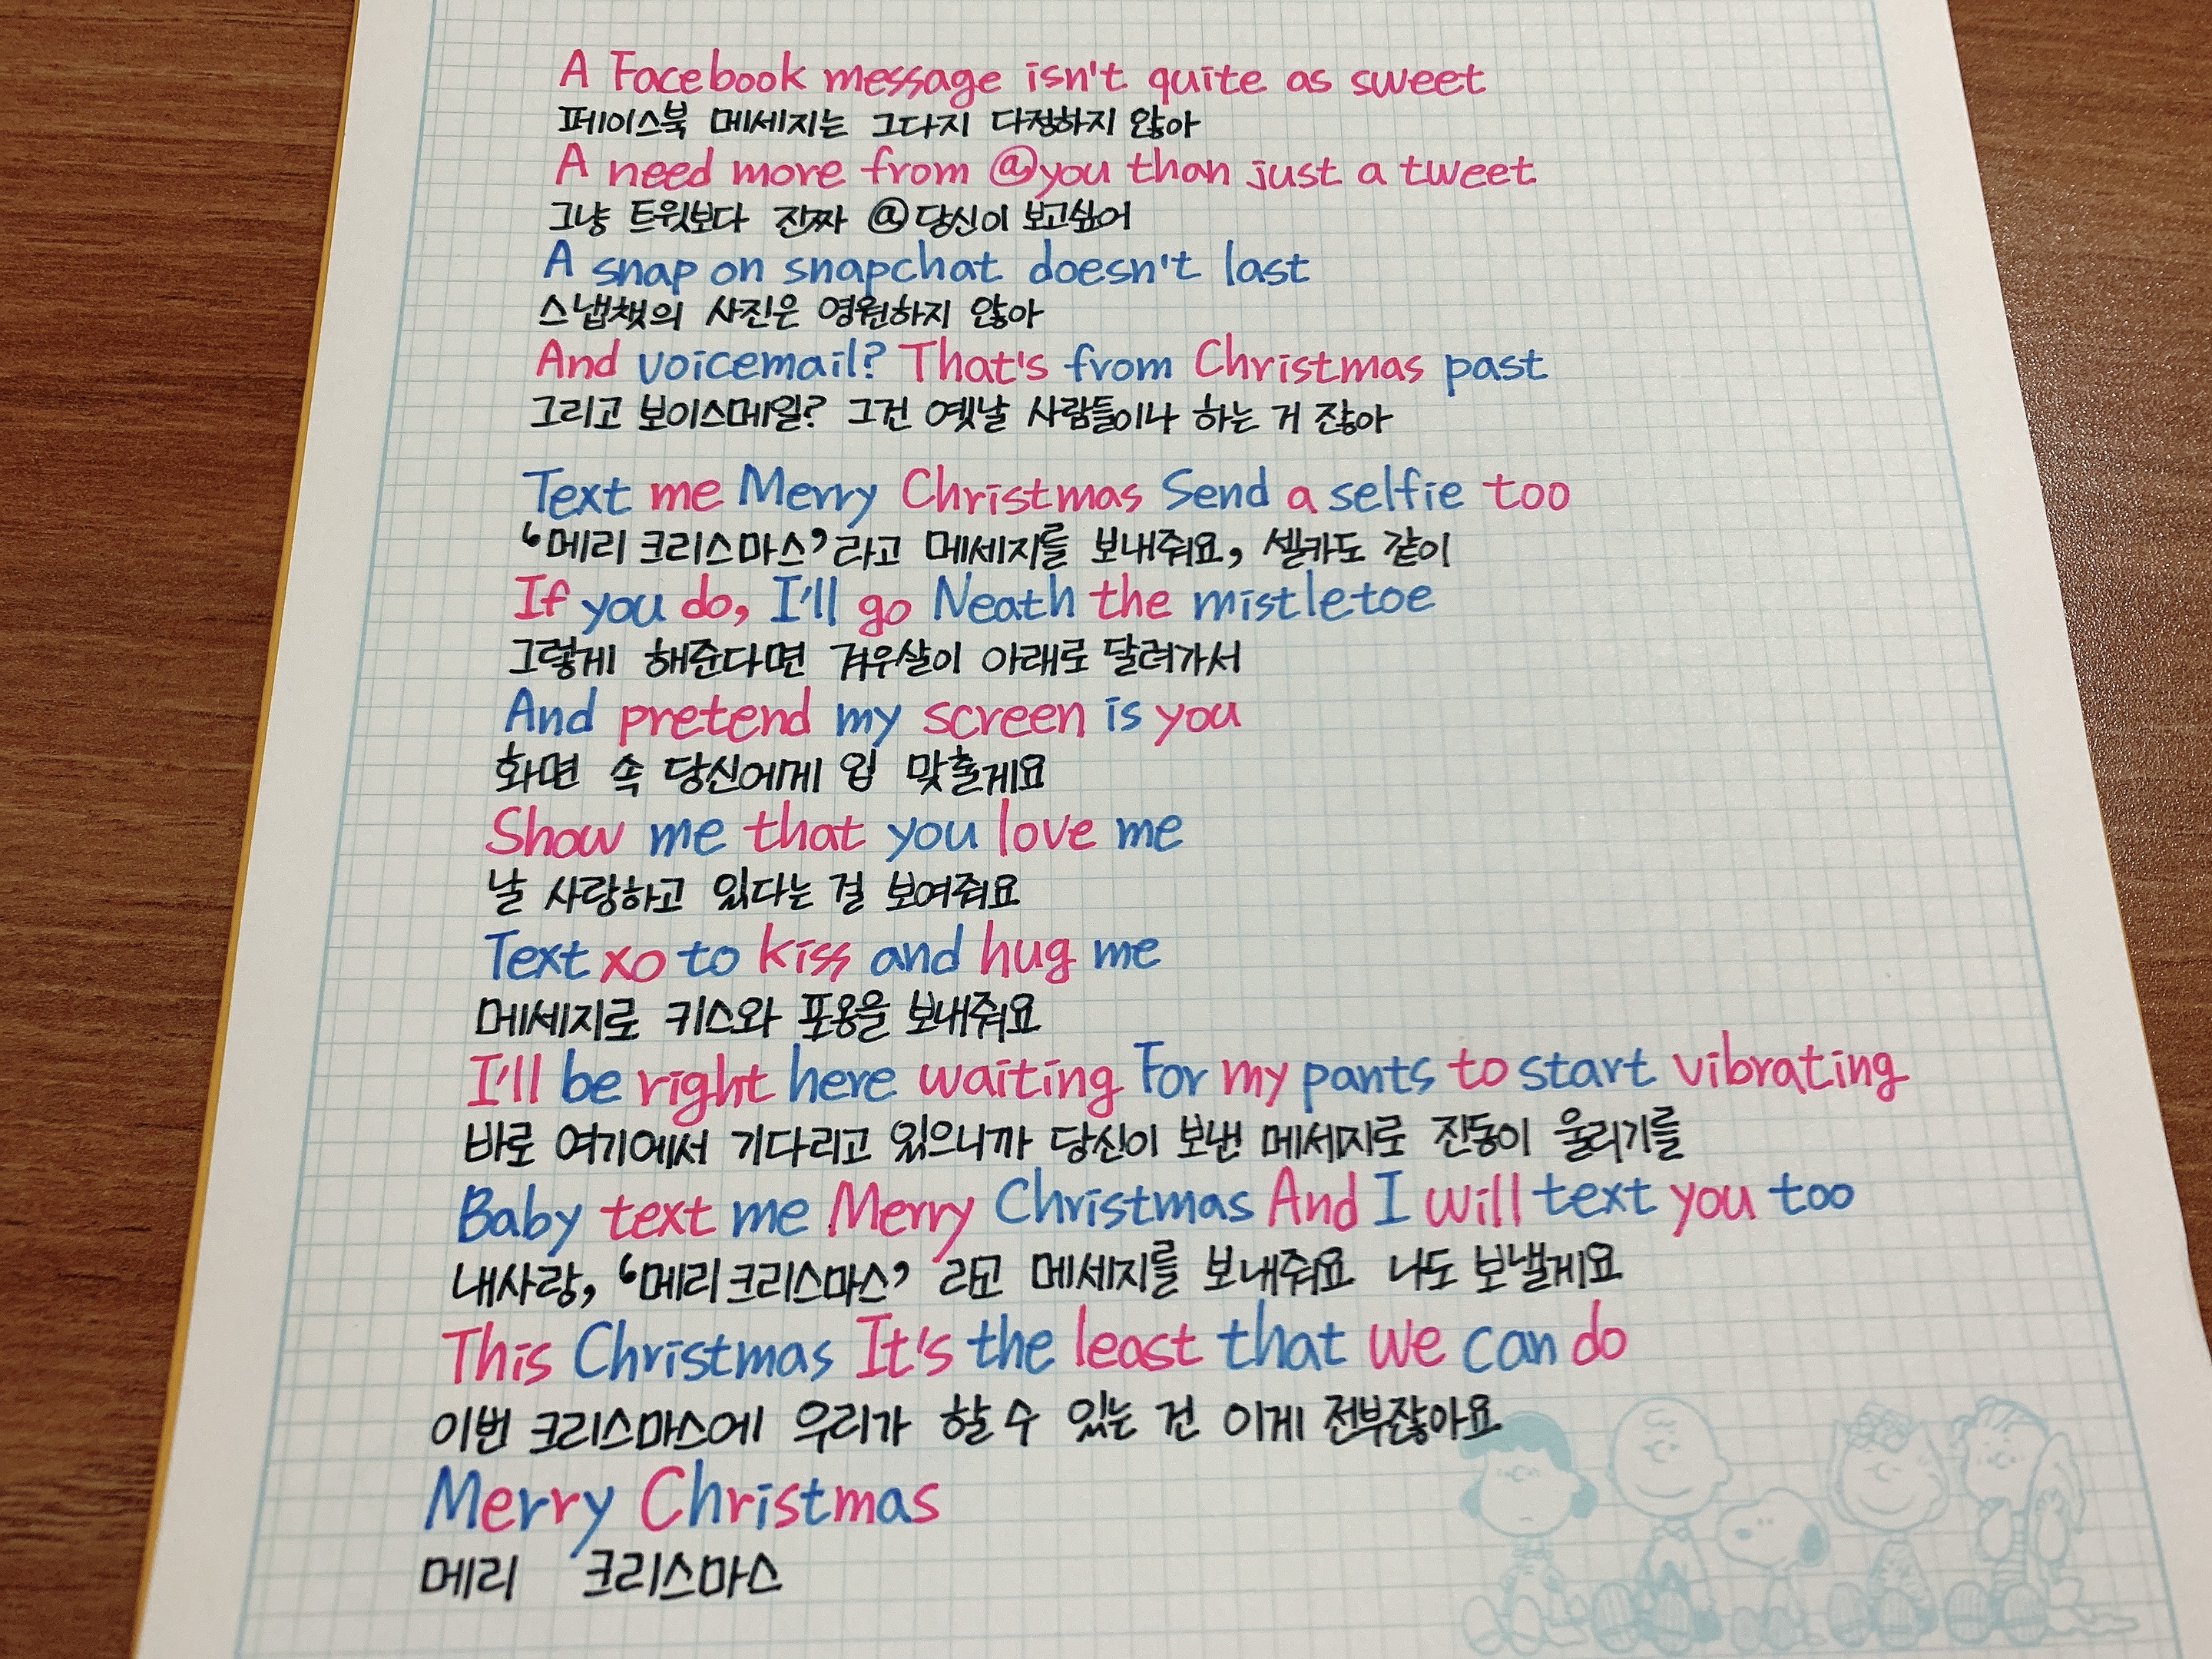 A Facebook message isn't quite as sweet
페이스북 메세지는 그다지 다정하지 않아
A need more from @you than just a tweet
그냥 트윗보다 진짜 @당신이 보고싶어
A snap on snapchat doesn't last
스냅챗의 사진은 영원하지 않아
And voicemail? That's from Christmas past
그리고 보이스메일? 그건 옛날 사람들이나 하는 거 잖아
Text me Merry Christmas Send a selfie too
'메리 크리스마스'라고 메세지를 보내줘요, 셀카도 같이
If you do, I'll go Neath the mistletoe
그렇게 해준다면 겨우살이 아래로 달려가서
And pretend my screen is you
화면 속 당신에게 입 맞출게요
Show me that you love me
날 사랑하고 있다는 걸 보여줘요
Text xo to kiss and hug me
메세지로 키스와 포옹을 보내줘요
I'll be right here waiting For my pants to start vibrating
바로 여기에서 기다리고 있으니까 당신이 보낸 메세지로 진동이 울리기를
Baby text me Merry Christmas And I will text you too
내사랑, '메리크리스마스' 라고 메세지를 보내줘요 나도 보낼게요
This Christmas It's the least that we can do
이번 크리스마스에 우리가 할 수 있는 건 이게 전부잖아요
Merry Christmas
메리 크리스마스